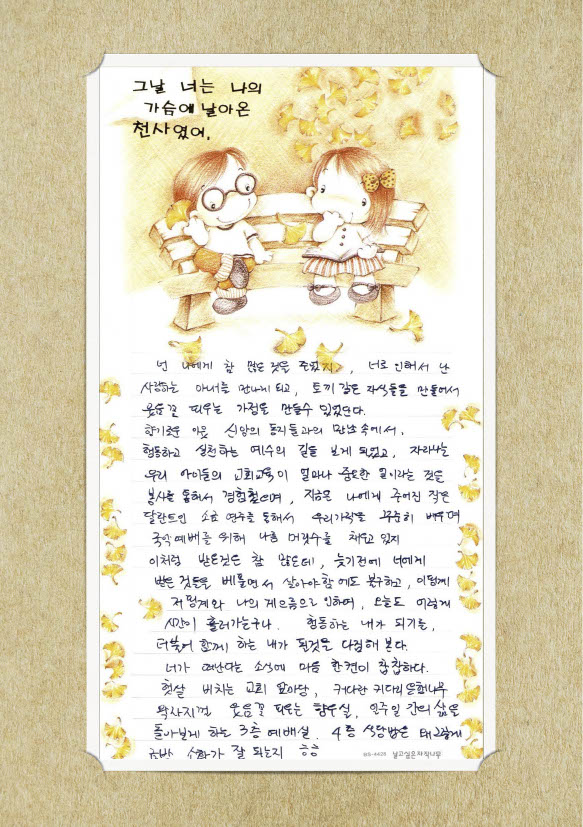 그날 너는 나의
가슴에 날아온
천사였어.
넌 나에게 참 많은 것을 주었지, 너로 인해서 난
사랑하는 아내를 만나게 되고, 토끼 같은 자식들을 만들어서
웃음꽃 피우는 가정도 만들수 있었단다.
향기로운 이웃 신앙의 동지들과의 만남 속에서,
행동하고 실천하는 예수의 길을 보게 되었고, 자라나는
우리 아이들의 교회교육이 얼마나 중요한 일이라는 것을
봉사를 통해서 경험했으며, 지금은 나에게 주어진 작은
달란트인 소금 연주를 통해서 우리가락을 꾸준히 배우며
국악예배를 위해 나름 머릿수를 채우고 있지
이처럼 받은것은 참 많은데, 늦기전에 너에게
받은 것들을 베풀면서 살아야 함에도 불구하고, 이렇게
저렇게 나의 게으름으로 인하여, 오늘도 이렇게
시간이 흘러가는구나. 행동하는 내가 되기를,
더불어 함께 하는 내가 될것을 다짐해 본다.
너가 떠난다는 소식에 마음 한켠이 참 찹찹하다.
햇살 비치는 교회 앞마당, 커다란 키다리 은행나무
왁자지껄 웃음꽃 피우는 향우실, 일주일 간의 삶을
돌아보게 하는 3층 예배실. 4층 식당밥은 왜 그렇게
금방 소화가 잘 되는지 ㅎㅎ
날고싶은자작나무